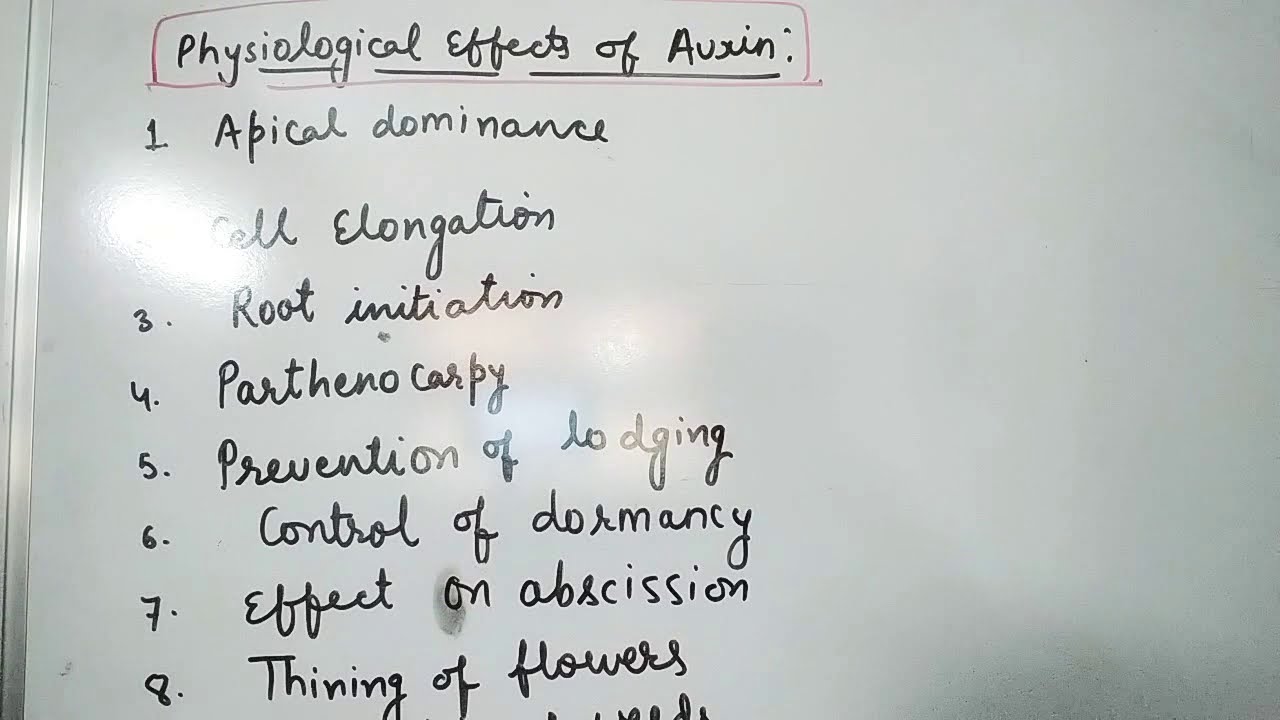 Physiological Effects of Auxin:
1. Apical dominance
Cell Elongation
3. Root initiation
4. Parthenocarpy
5. Prevention of lodging
6. Control of dormancy
7. Effect on abscission
8. Thining of flowers